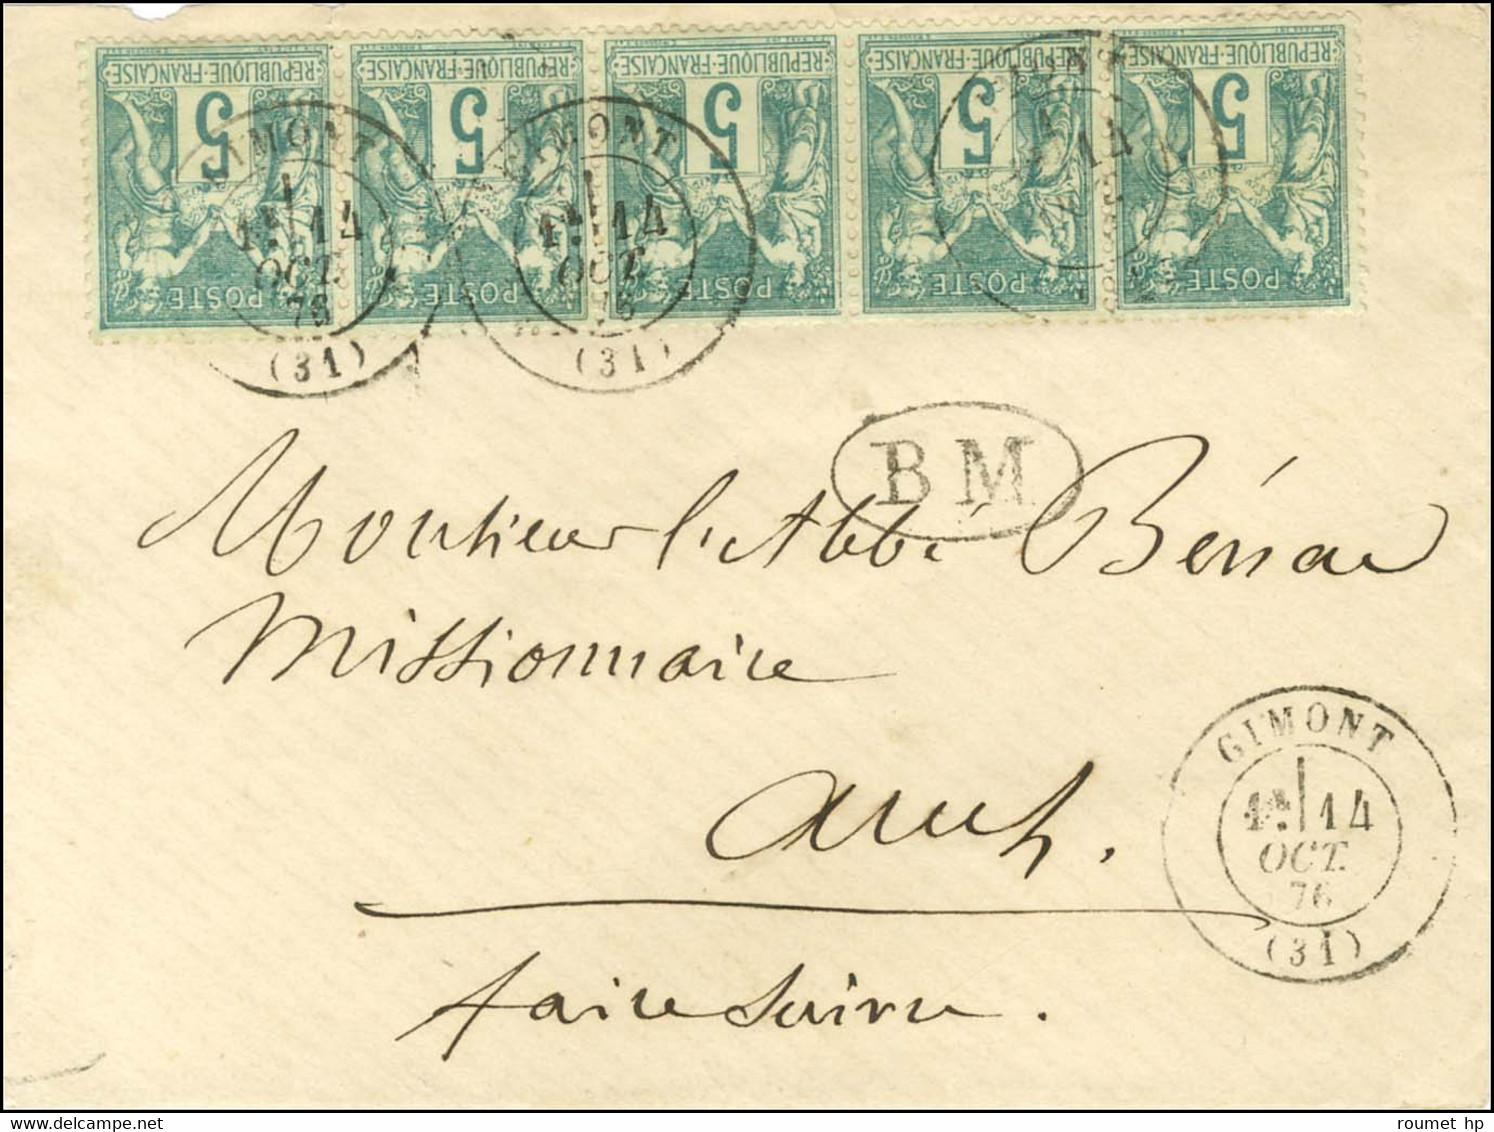 REPUBLIQUE·FRANÇAISE REPUBLIQUE·FRANÇAISE REPUBLIQUE·FRANÇAISE REPUBLIQUE·FRANÇAISE REPUBLIQUE·FRANÇAISE
5 5 5 5 5
POSTE POSTE POSTE POSTE POSTE
GIMONT
1E 14
OCT.
76
(31)
GIMONT
1E 14
OCT.
76
(31)
14
BM
Monsieur l'Abbé
Missionnaire
Auch.
faire Suivre.
GIMONT
1E 14
OCT.
76
(31)
roumet hp